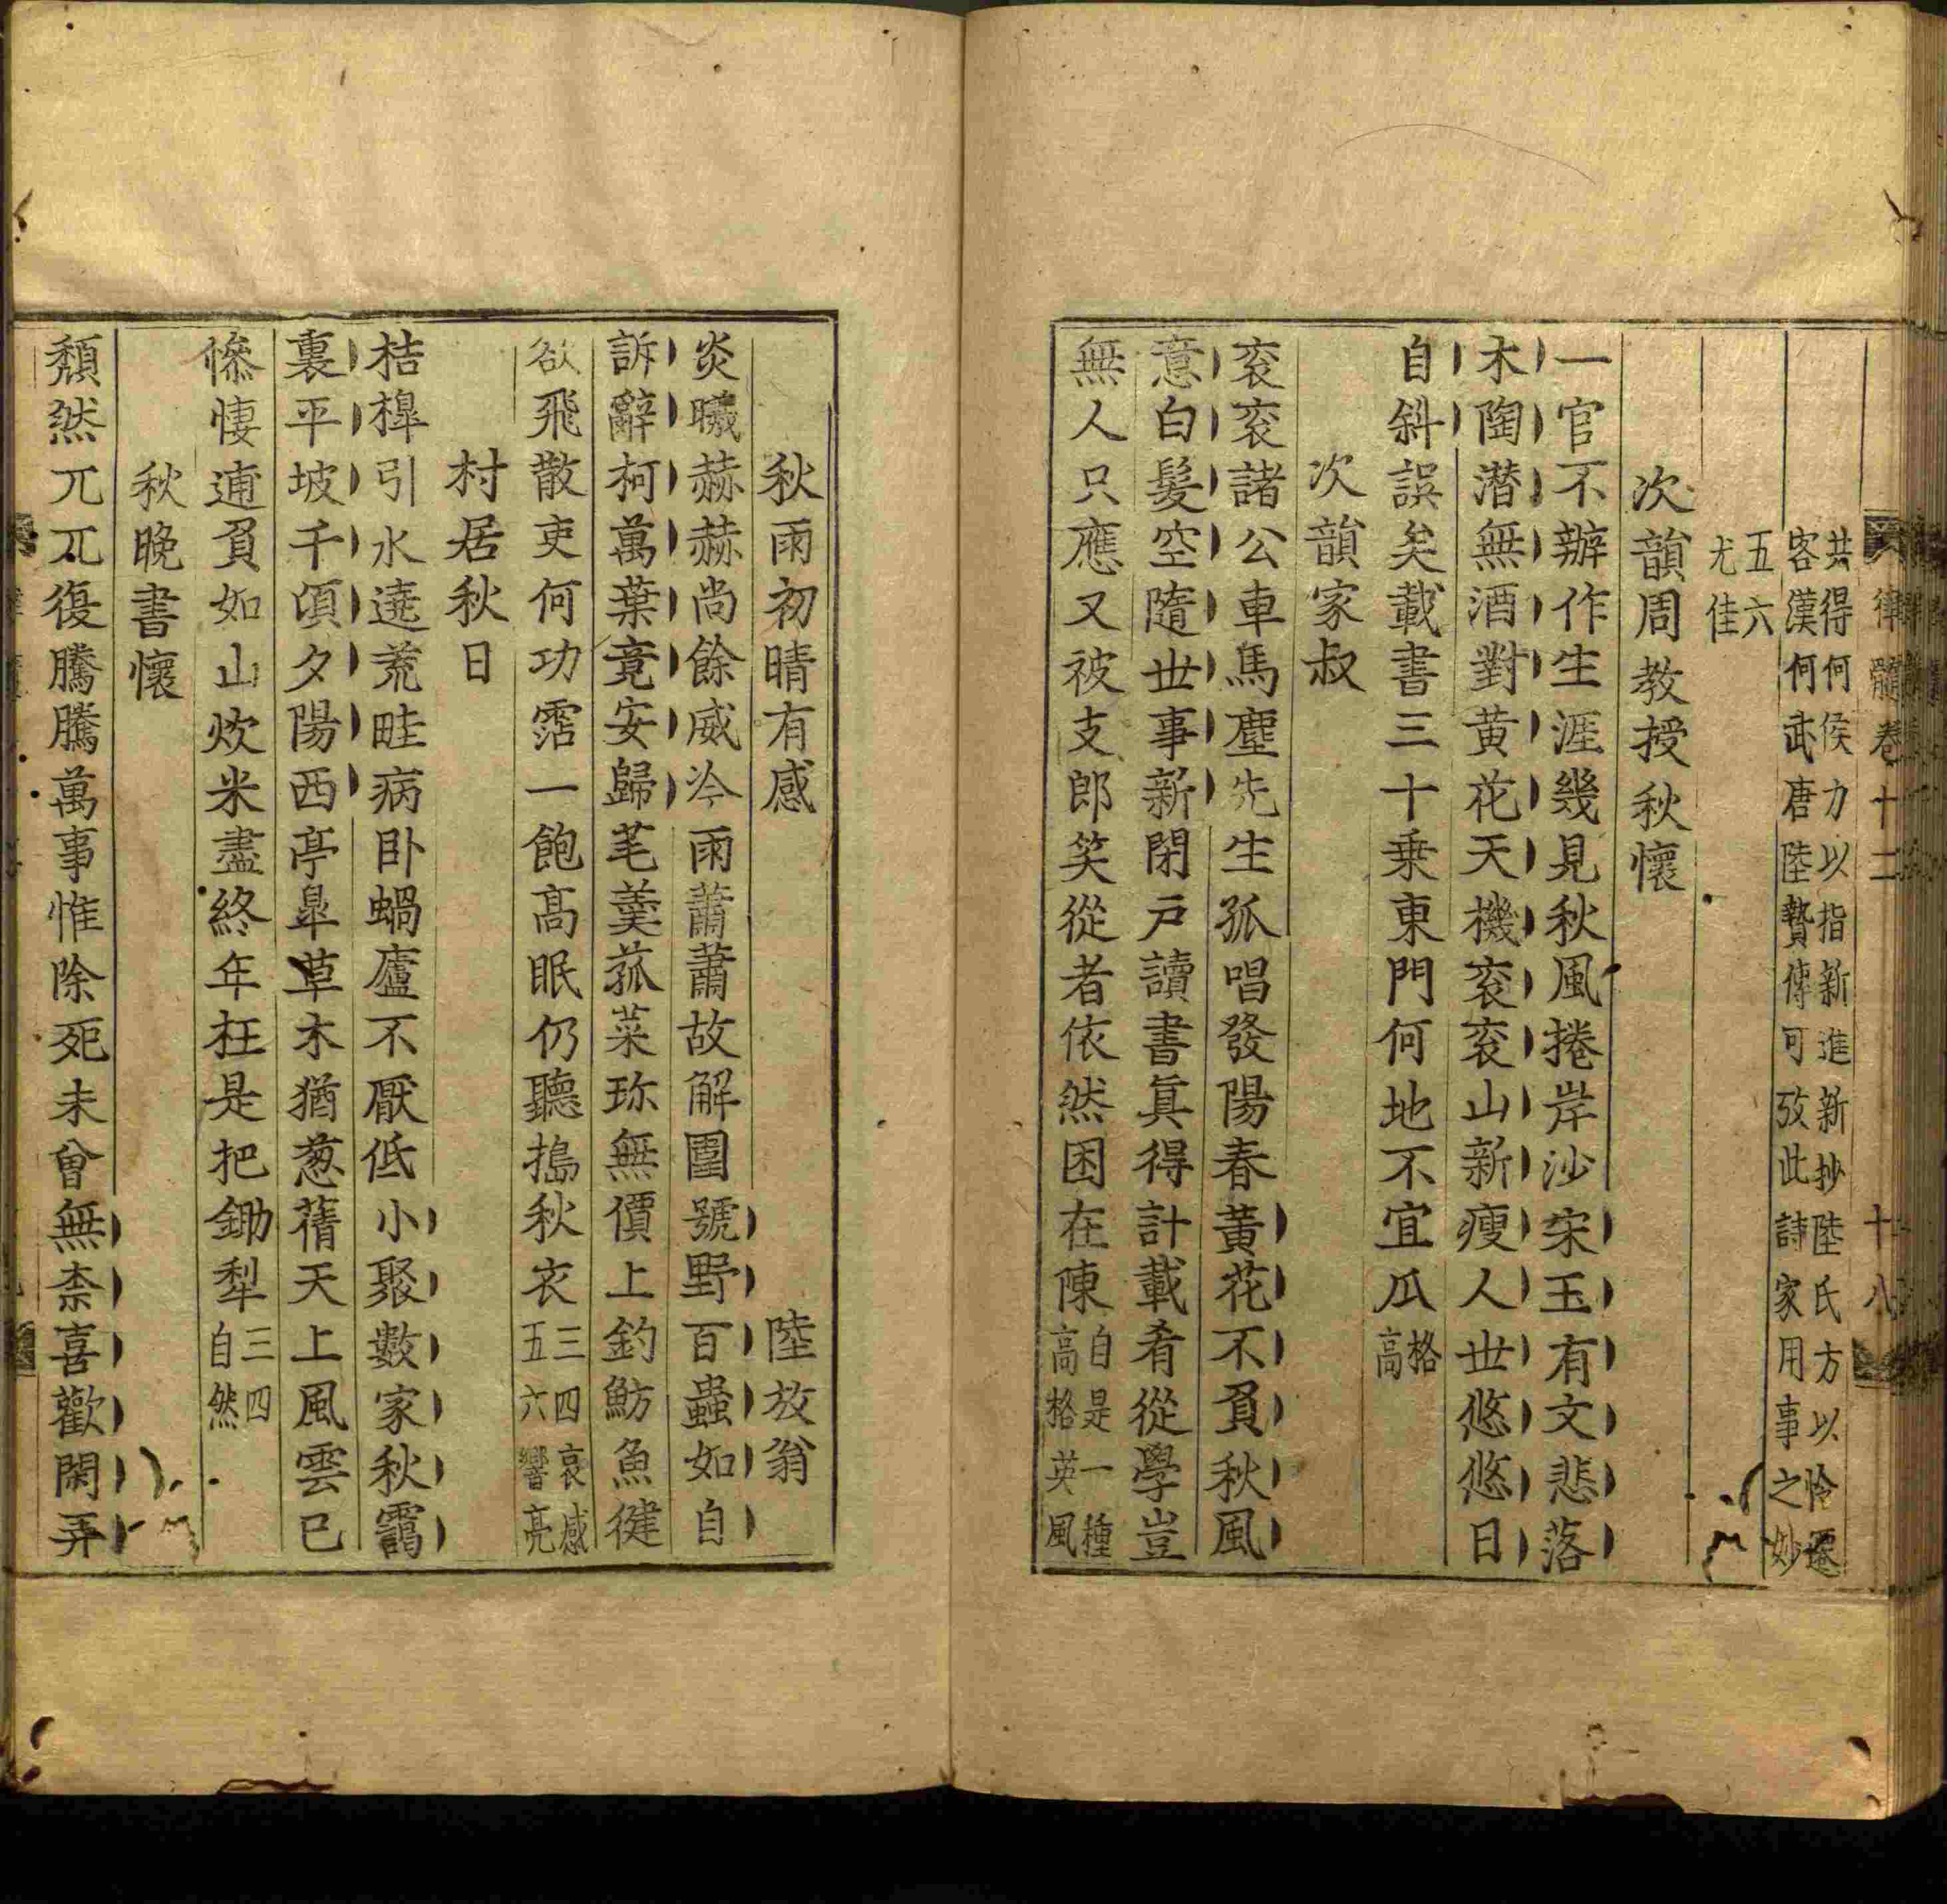 律髓卷十二 十八
共得何侯力以指新進新抄陸氏方以怜還
客漢何武唐陸贄傳可攷此詩家用事之妙
五六
尤佳
次韻周教授秋懷
一官不辦作生涯幾見秋風捲岸沙宋玉有文悲落
木陶潜無酒對黄花天機衮衮山新瘦人世悠悠日
自斜誤矣載書三十乗東門何地不宜瓜格
高
次韻家叔
衮衮諸公車馬塵先生孤唱發陽春黃花不負秋風
意白髮空隨世事新閉戸讀書眞得計載肴從學豈
無人只應又被支郎笑從者依然困在陳自是一種
高格英風
秋雨初晴有感 陸放翁
炎曦赫赫尚餘威冷雨蕭蕭故解圍號野百蟲如自
訴辭柯萬葉竟安歸芼羹菰菜珎無價上釣魴魚健
欲飛散吏何功霑一飽髙眠仍聽搗秋衣三四哀感
五六響亮
村居秋日
桔槹引水遶荒畦病卧蝸廬不厭低小聚數家秋靄
裏平坡千頃夕陽西亭臯草木猶葱蒨天上風雲已
慘悽逋負如山炊米盡終年枉是把鋤犁三四
自然
秋晚書懷
頽然兀兀復騰騰萬事惟除死未曾無柰喜歡閑弄